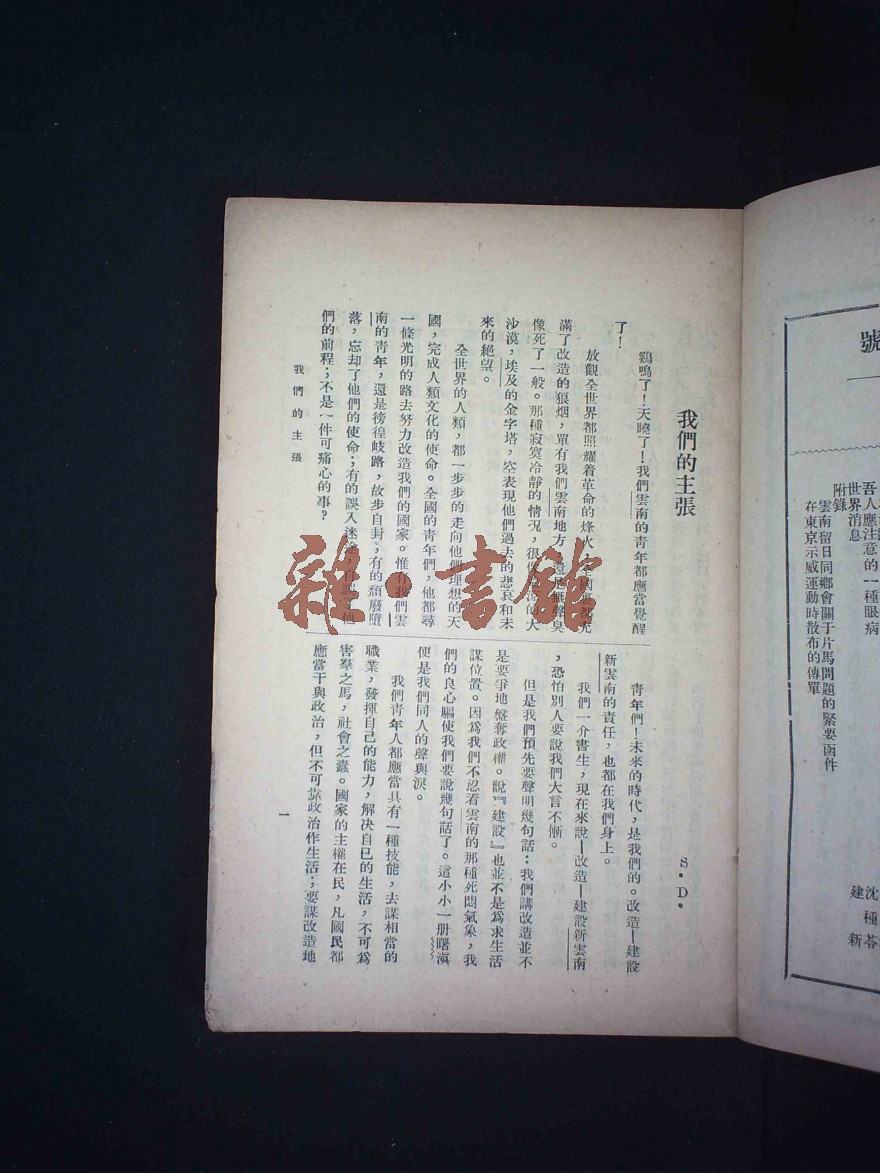 我們的主張
S．D．
鷄鳴了！天曉了！我們雲南的青年都應當覺醒
了！
放觀全世界都照耀着革命的烽火，全國
滿了改造的狼烟，單有我們雲南地方，還是無聲臭
像死了一般。那種寂寞冷靜的情况，很像
沙漠，埃及的金字塔，空表現他們過去的悲哀和未
來的絶望。
全世界的人類，都一步步的走向他們理想的天
國，完成人類文化的使命。全國的青年們，他都尋
一條光明的路去努力改造我們的國家。惟有我們雲
南的青年，還是徬徨岐路，故步自封；有的頽廢墮
落，忘却了他們的使命；有的誤入迷途，他
們的前程；不是一件可痛心的事？
青年們！未來的時代，是我們的。改造—建設
新雲南的責任，也都在我們身上。
我們一介書生，現在來說—改造—建設新雲南
，恐怕別人要說我們大言不慚。
但是我們預先要聲明幾句話：我們講改造並不
是要爭地盤奪政權。說『建設』也並不是爲求生活
謀位置。因爲我們不忍看雲南的那種死悶氣象，我
們的良心驅使我們要說幾句話了。這小小一册曙滇
便是我們同人的聲與淚。
我們青年人都應當具有一種技能，去謀相當的
職業，發揮自己的能力，解决自已的生活，不可爲
害羣之馬，社會之蠹。國家的主權在民，凡國民都
應當干與政治，但不可靠政治作生活；要謀改造地
我們的主張
一
雜·書館
號
吾人應注意的一種眼病
世界消息
附錄
雲南留日同鄉會關于片馬問題的緊要函件
在東京示威運動時散布的傳單
沈
種苓
建新